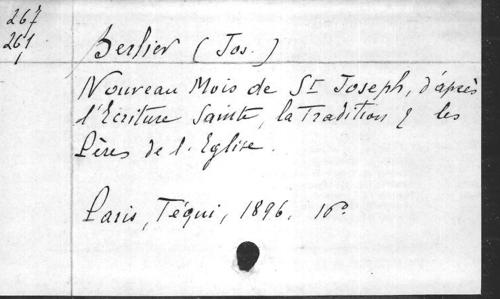 267
261
1
Berlier (Jos.)
Nouveau Mois de St Joseph, d'après
l'Ecriture Sainte, la Tradition & les
Pères de l'Eglise.
Paris, Téqui, 1896. 16º